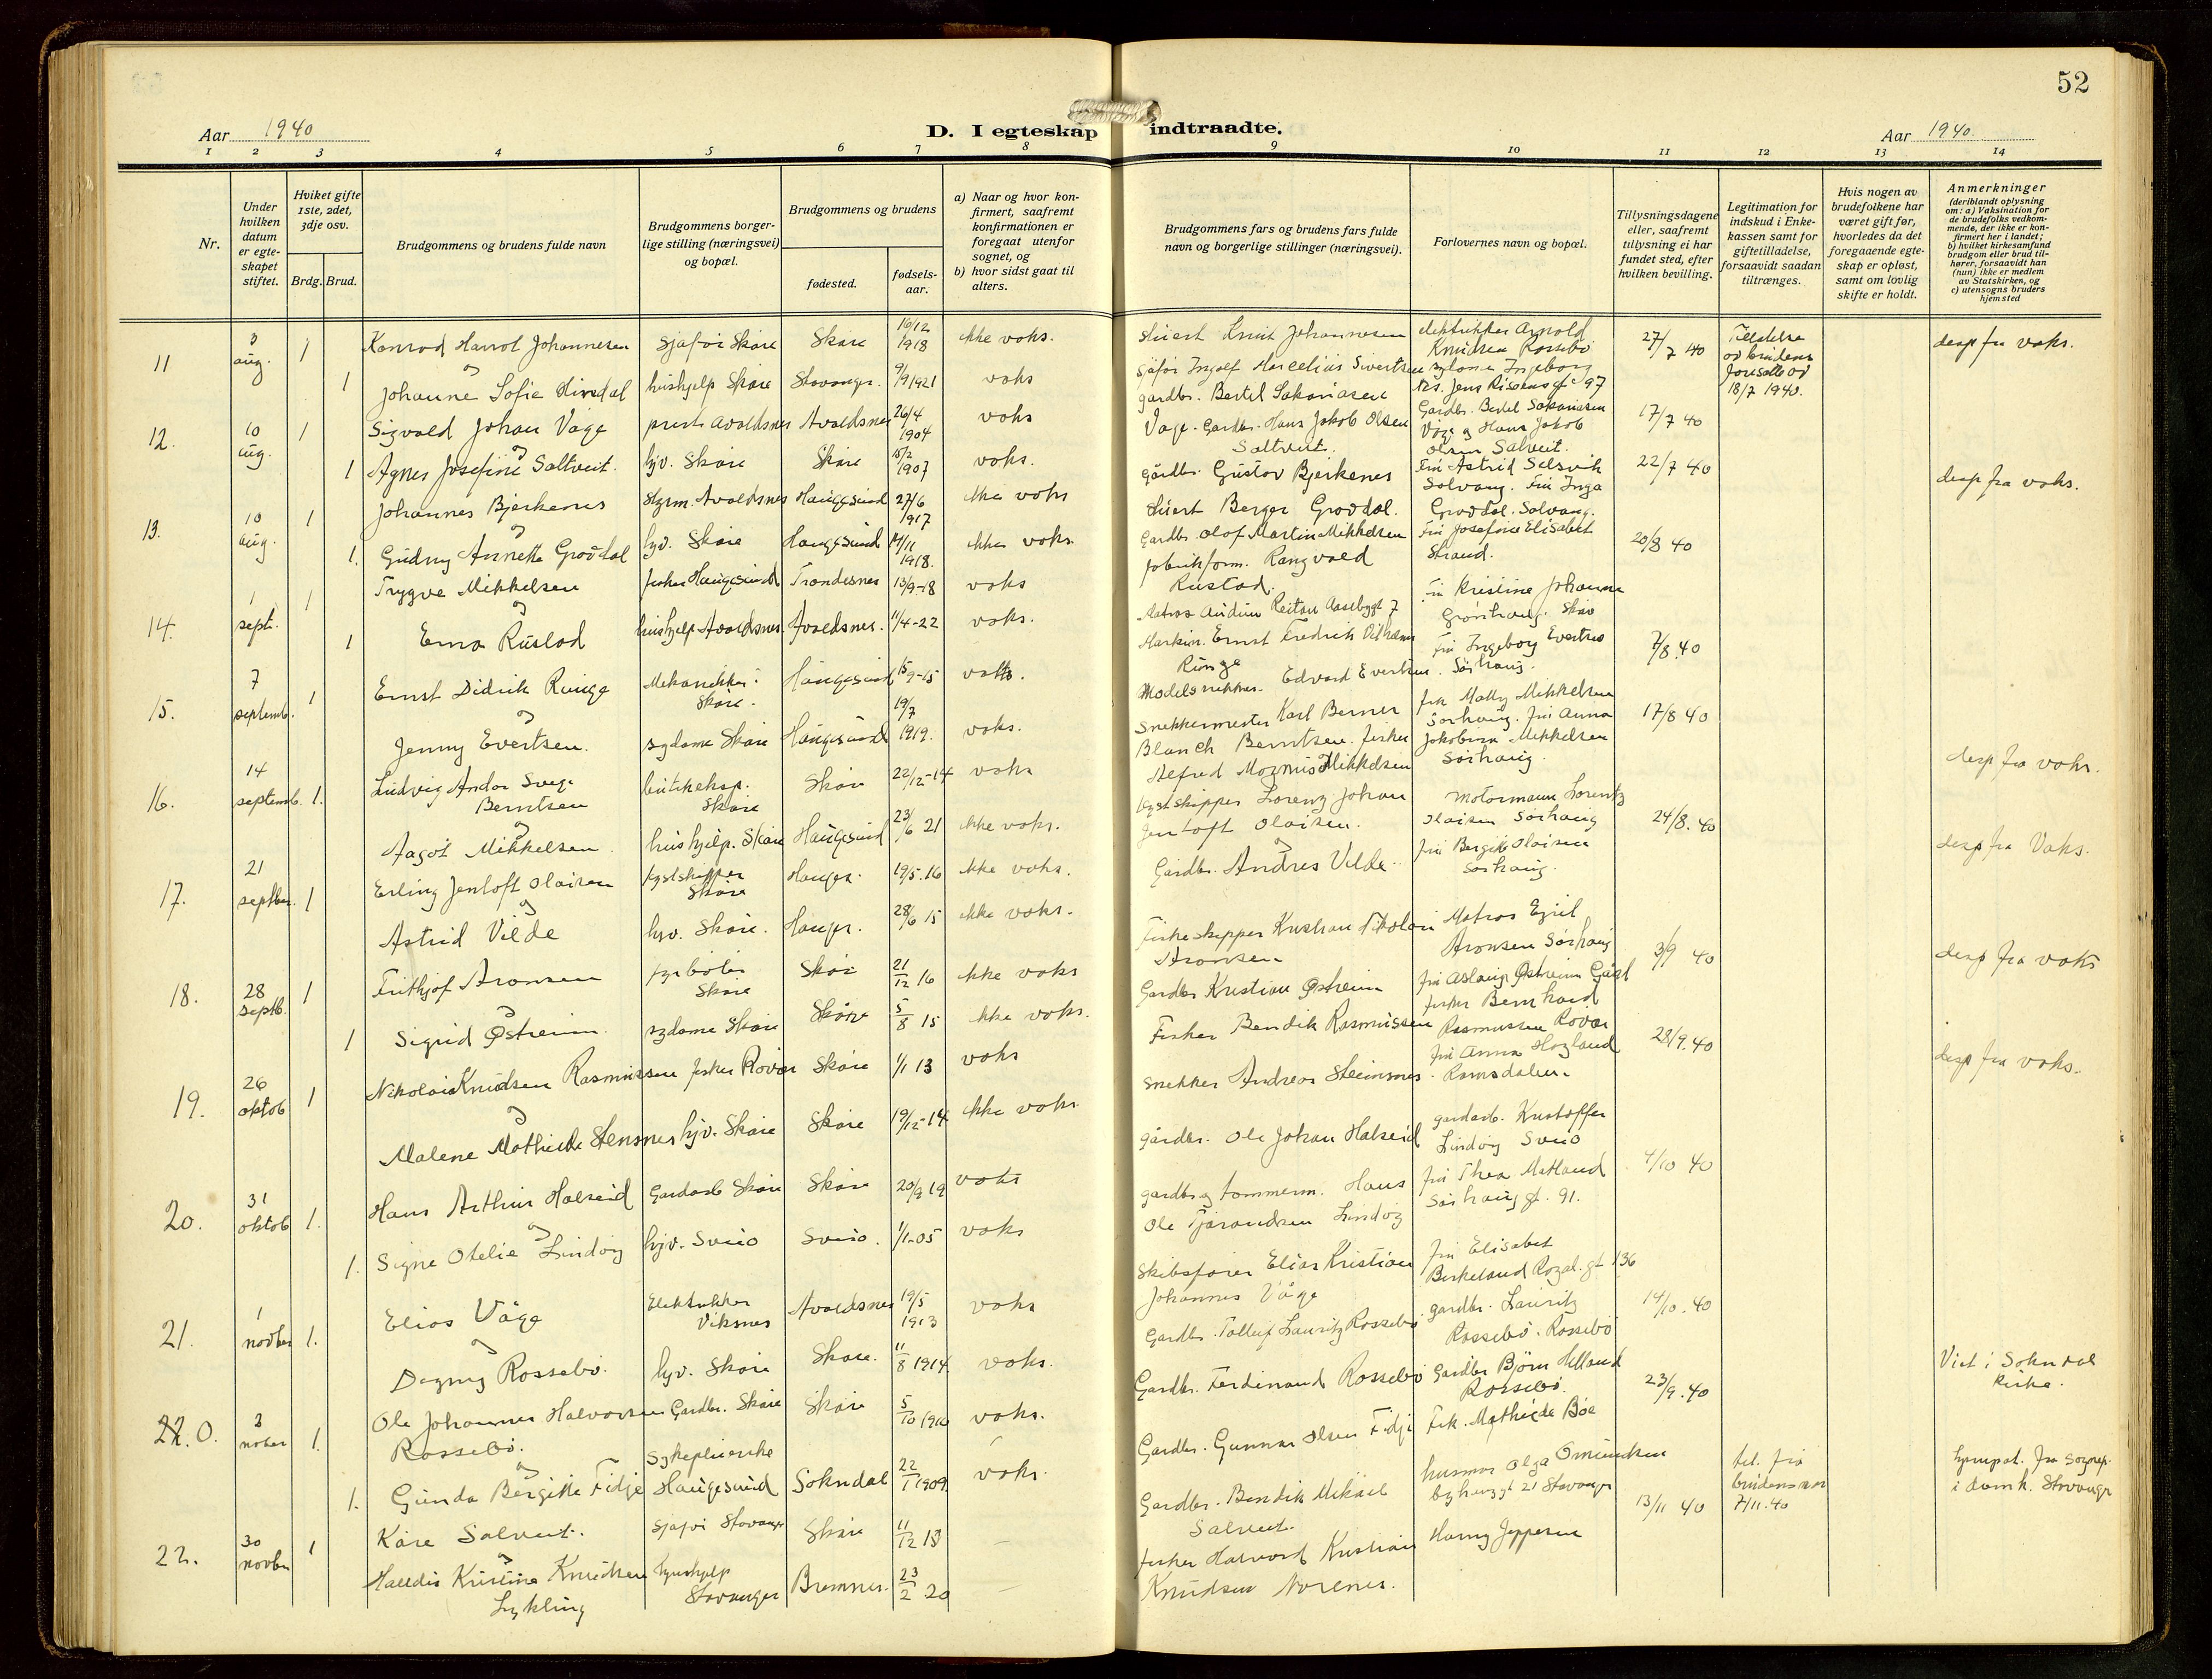 52
Aar 1940
D. I egteskap indtraadte.
Aar 1940.
1 2 3 4 5 6 7 8 9 10 11 12 13 14
Nr.
Under hvilken datum er egteskapet stiftet.
Hviket gifte 1ste, 2det, 3dje osv.
Brdg. Brud.
Brudgommens og brudens fulde navn
Brudgommens borgerlige stilling (næringsvei) og bopæl.
Brudgommens og brudens
fødested.
fødselsaar.
a) Naar og hvor konfirmert, saafremt konfirmationen er foregaat utenfor sognet, og
b) hvor sidst gaat til alters.
Brudgommens fars og brudens fars fulde navn og borgerlige stillinger (næringsvei).
Forlovernes navn og bopæl.
Tillysningsdagene eller, saafremt tillysning ei har fundet sted, efter hvilken bevilling.
Legitimation for indskud i Enkekassen samt for giftetilladelse, forsaavidt saadan tiltrænges.
Hvis nogen av brudefolkene har været gift før, hvorledes da det foregaaende egteskap er opløst, samt om lovlig skifte er holdt.
Anmerkninger
(deriblandt oplysning om: a) Vaksination for de brudefolks vedkommende, der ikke er konfirmert her i landet; b) hvilket kirkesamfund brudgom eller brud tilhører, forsaavidt han (hun) ikke er medlem av Statskirken, og c) utensogns bruders hjemsted
11 3 aug. 1 Konrad Harrot Johannesen Sjafør Skåre Skåre 16/12 1918 ikke vaks.
og
1 Johanne Sofie hushjelp Skåre Stavanger. 9/9 1921 vaks
12. 10 aug. 1 Sigvald Johan Våge prest Avaldsnes Avaldsnes 26/4 1904 vaks
og
1 Agnes Josefine Saltveit. hjv. Skåre Skåre 15/2 1907 vaks.
13. 10 aug. 1 Johannes Bjerkenes Styrm. Avaldsnes Haugesund 27/6 1917 ikke vaks
og
1. Gudny Annette Groddal hjv. Skåre Haugesund 14/11 1918. ikke vaks.
14. 1 sept. 1 Trygve Mikkelsen fisker Haugesund Trondenes 13/9-18 vaks
og
1 Erna Rustad hushjelp Avaldsnes. Avaldsnes. 11/4-22 vaks.
15. 7 septemb. 1 Ernst Didrik Runge Mekanikker Skåre. Haugesund 15/9-15 vaks.
og
Jenny Evertsen. sydame Skåre Haugesund 19/7 1919. vaks.
16. 14 septemb. 1. Ludvig Andor Svege Berntsen butikeksp. Skåre Skåre 22/12-14 vaks
og
Aagot Mikkelsen hushjelp. Skåre Haugesund 23/6 21 ikke vaks.
17. 21 septber. 1 Erling Jentoft Olaisen kystskipper Skåre Hauges. 19/5.16 ikke vaks.
og
Astrid Vilde hjv. Skåre. Hauges. 28/6 15 ikke vaks.
18. 28 septb. 1 Frithjof Aronsen fyrbøter Skåre Skåre 21/12 16 ikke vaks
og
1 Sigrid Østreim. sydame Skåre Skåre 5/8 15 ikke vaks.
19. 26 oktob 1 Nikolai Knudsen Rasmussen fisker Røvær Skåre 1/1 13 vaks
og
Malene Mathilde Stensnes hjv. Skåre Skåre 19/12-14 ikke vaks
20. 31 oktob 1. Hans Arthur Halseid Gardarb Skåre Skåre 20/9 19 vaks
og
1. Signe Otelie Lindøy hjv. Sveio Sveio. 1/1-05 vaks
21. 1 novber 1. Elias Våge Elektrikker Viksnes Avaldsnes 19/5 1913 vaks
og
Dagny Rossebø. hjv. Skåre Skåre. 11/8 1914 vaks.
22.0. 2 nober 1. Ole Johannes Halvorsen Rossebø. Gardbr. Skåre Skåre 5/10 1910 vaks.
og
1. Gunda Bergitte Fidje Sykepleierske Haugesund Sokndal 22/1 1909. vaks.
22. 30 novber 1 Kåre Salveit. Sjafør Stavanger Skåre 11/12 13 –
og
Halldis Kristine Knudsen Lykling hushjelp Stavanger Bremnes. 23/2 20 –
Stuert Knut Johannesen
sjåfør Ingolf Marcelius Sivertsen
elektrikker Arnold Knudsen Rossebø
27/7 40
Tilladelse
av brudens
foresatte av
18/7 1940.
desp fra vaks.
gardbr. Bertel Sakariasen
Våge. Gardbr. Hans Jakob Olsen
Saltveit.
Gardbr. Bertel Sakariasen
Våge og Hans Jakob
Olsen Salveit.
17/7 40
gårdbr. Gustav Bjerkenes
Stuert Berger Groddal.
Fru Astrid Selsvik
Solvang. Fru Inga
Groddal. Solvang.
22/7 40
desp fra vaks.
Gardbr Olaf Martin Mikkelsen
fabrikform. Rangvald
Rustad.
Fru Josefine Elisabet
Strand.
20/8 40
Matros Audun Reitan Aasebygt 7
Fru Kristine Johanne
Grønhaug. Skåre
Maskin. Ernst Fredrik Vilhelm
Runge
Modelsnekker. Edvard Evertsen.
Fru Ingeborg Evertsen
Sørhaug.
7/8.40
Snekkermester Karl Berner
Blanch Berntsen. fisker
Alfred Magnus Mikkelsen
frk Mally Mikkelsen
Sørhaug. fru Anna
Jakobine Mikkelsen
Sørhaug.
17/8 40
desp fra vaks.
kystskipper Lorenz Johan
Jentoft Olaisen.
og
Gårdbr. Andres Vilde.
Motormann Lorentz
Olaisen Sørhaug
fru Bergitte Olaisen
Sørhaug.
24/8.40
desp fra Vaks.
Fiskeskipper Kristian Nikolai
Aronsen
Gardbr Kristian Østreim
Matros Egil
Aronsen Sørhaug
fru Aslaug Østreim
3/9 40
desp fra vaks
Fisker Bendik Rasmussen
Snekker Andreas Steinsnes.
fisker Bernhard
Rasmussen Rovær
fru Anna Hogland
Ramsdalen.
28/9.40
desp fra vaks.
gårdbr. Ole Johan Halseid
gardbr og tømmerm. Hans
Ole Tjørandsen Lindøy
gardarb. Kristoffer
Lindøy Sveio
fru Thea Matland
Sørhauggt. 91.
4/10 40
Skibsfører Elias Kristian
Johannes Våge
Gardbr. Tolleif Lauritz Rossebø
fru Elisabet
Birkeland Rogal.gt 136
gardbr. Lauritz
Rossebø. Rossebø
14/10.40
Gardbr. Ferdinand Rossebø
Gardbr. Gunnar Olsen Fidje
Gardbr Bjørn Helland
Rossebø.
Frk. Mathilde Bøe
23/9.40
Viet i Sokndal
kirke.
Gardbr. Bendik Mikael
Salveit.
fisker Halvard Kristian
Knudsen Norenes.
husmor Olga Omundsen
21 Stavanger
Harry Jeppesen
13/11 40
til. fra
brudens mor
7/11.40
fra Sognep.
i domk. Stavanger